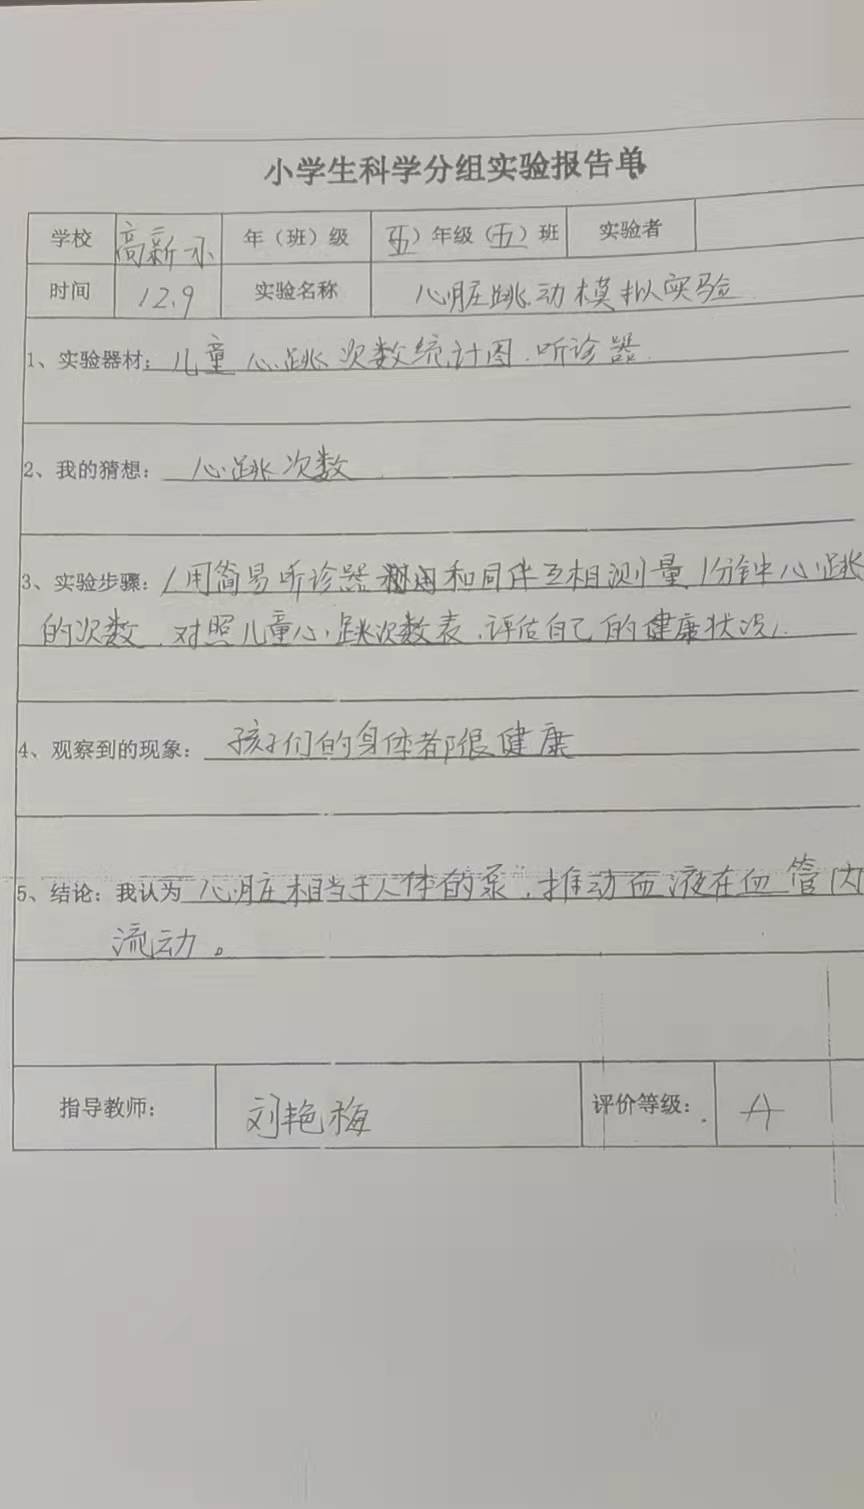 小学生科学分组实验报告单
学校 高新小 年（班）级 （五）年级（五）班 实验者
时间 12.9 实验名称 心脏跳动模拟实验
1、实验器材：儿童心跳次数统计图.听诊器.
2、我的猜想：心跳次数
3、实验步骤：用简易听诊器和同伴互相测量1分钟心跳
的次数，对照儿童心跳次数表，评估自己的健康状况.
4、观察到的现象：孩子们的身体都很健康
5、结论：我认为 心脏相当于人体的泵"，推动血液在血管内
流动。
指导教师： 刘艳梅 评价等级： A